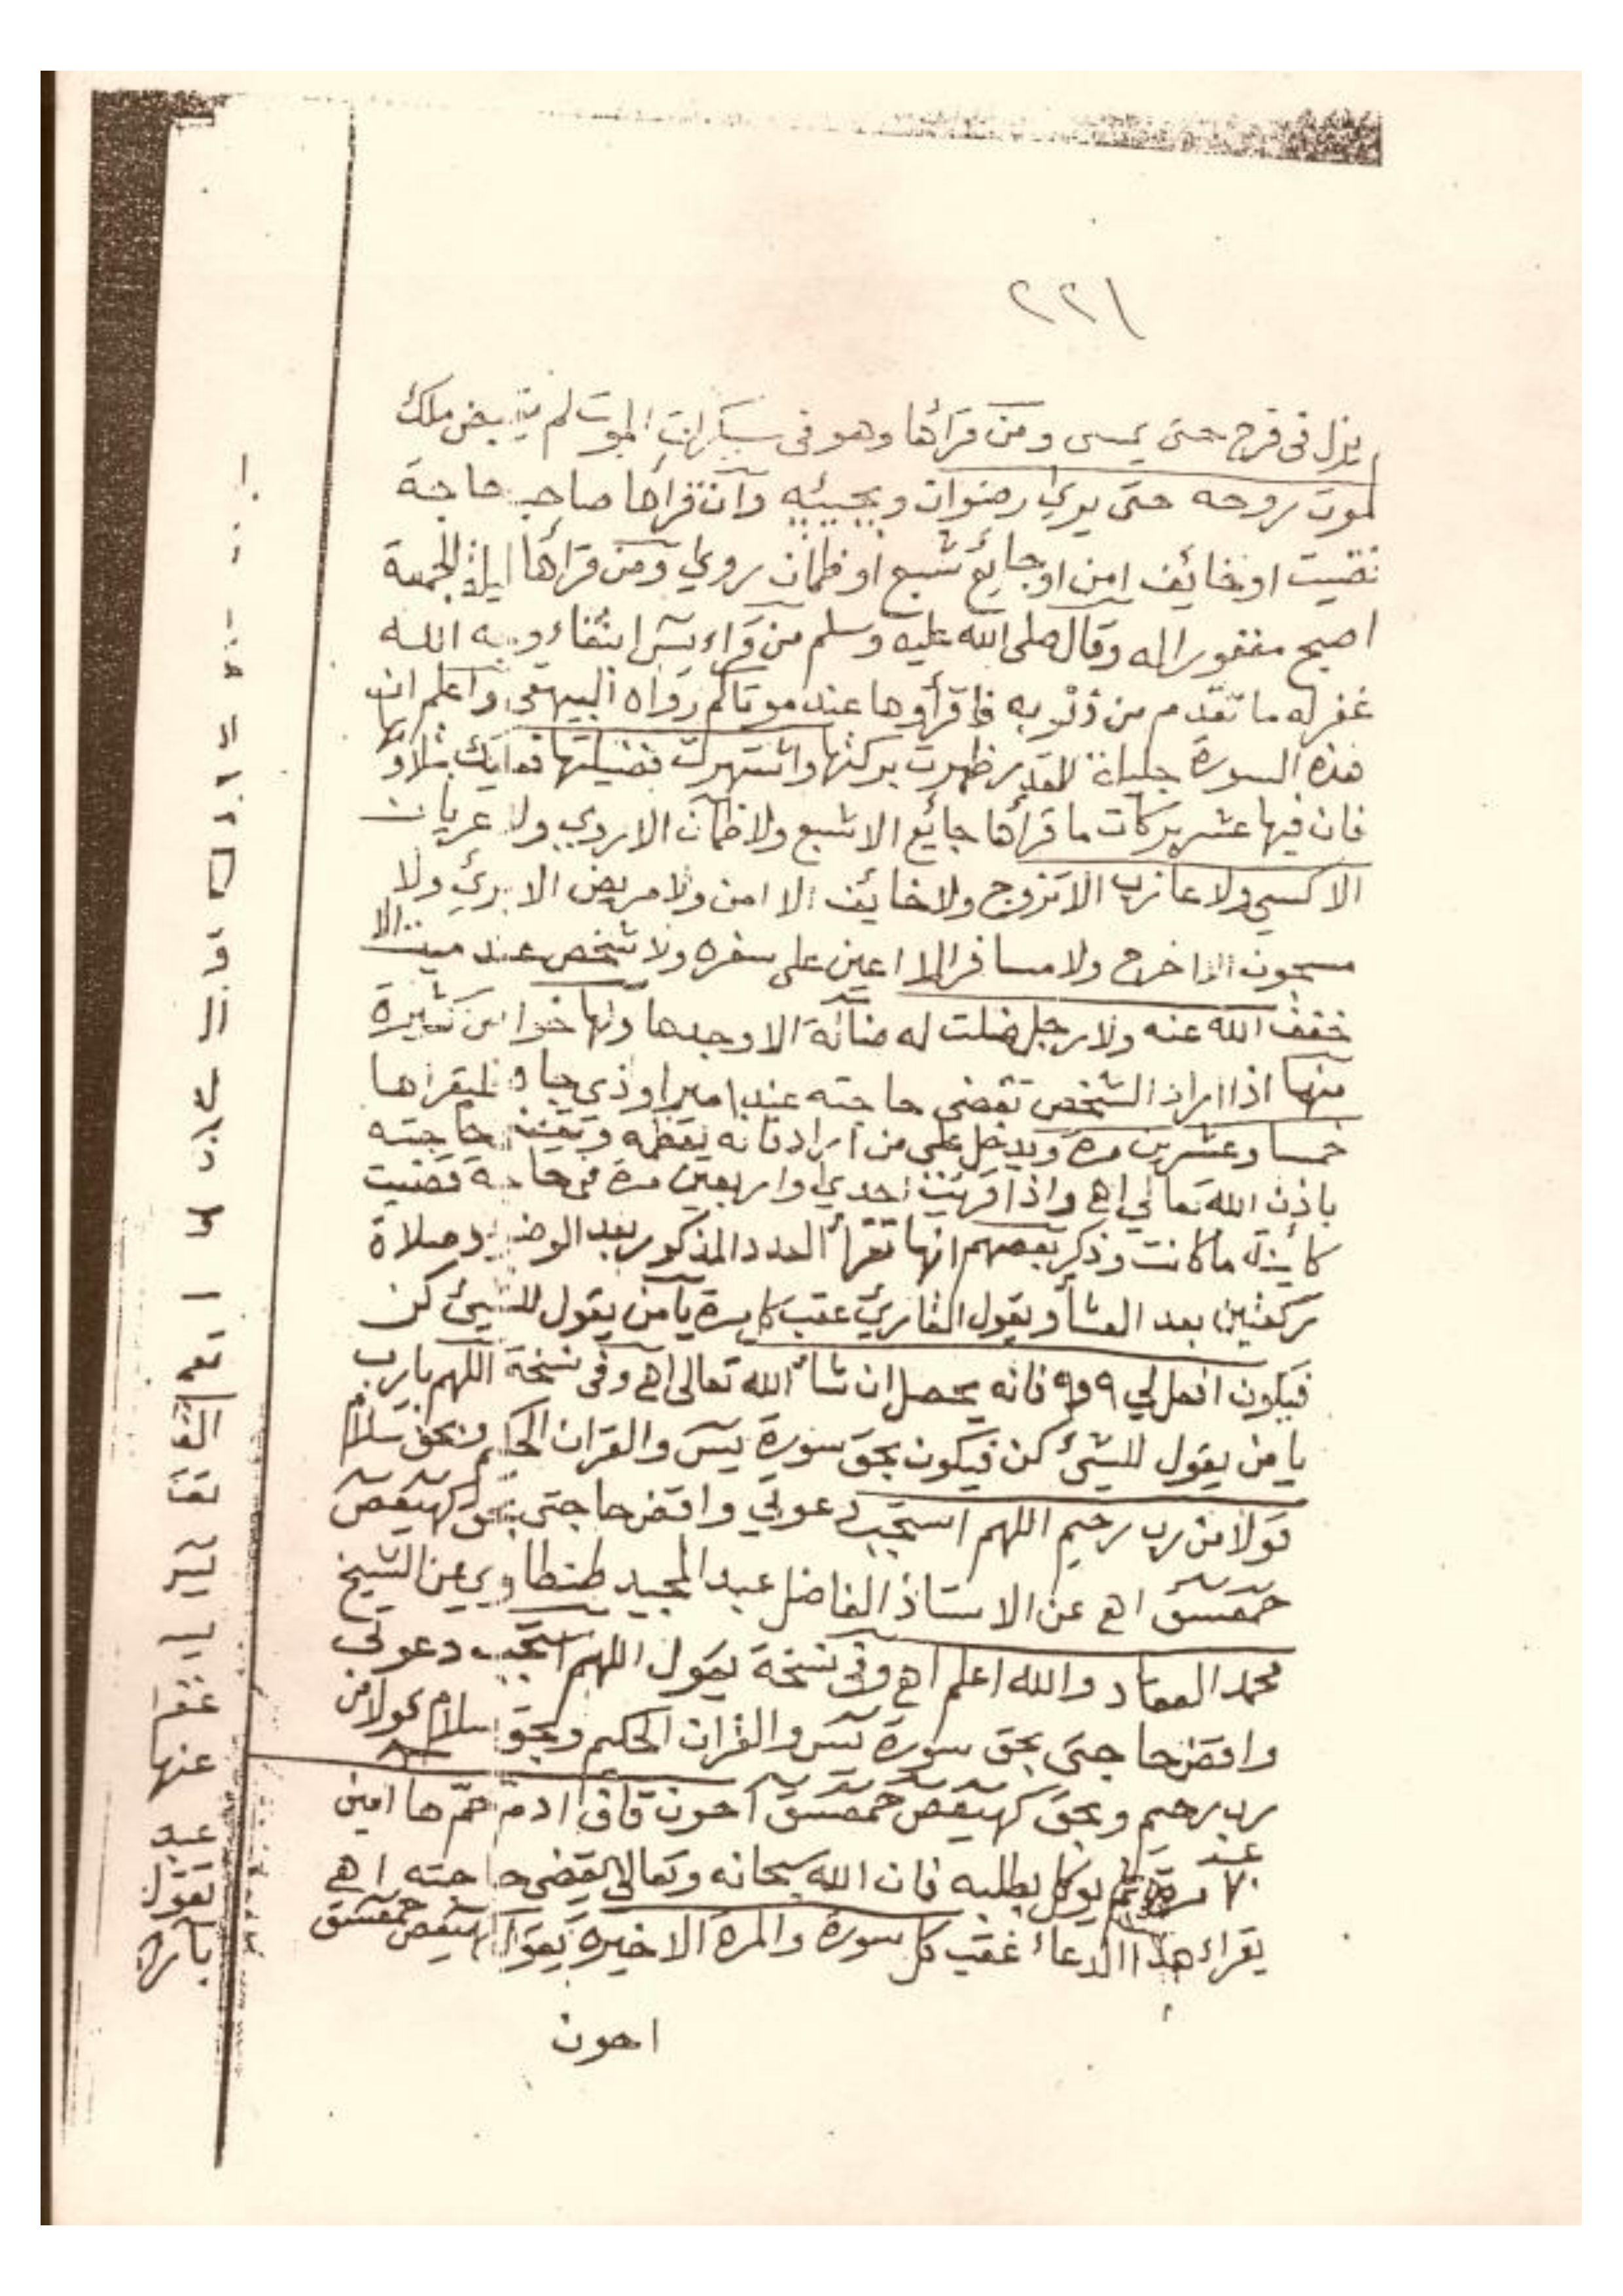 ٢٢١
يزل فى فرح حتى يمسى ومن قرأها وهو فى سكرات الموت لم يقبض ملك
الموت روحه حتى يري رضوان ويجيئه وان قرأها صاحب حاجة
قضيت او خائف امن او جائع شبع او ظمان روي ومن قرأها ليلة الجمعة
اصبح مغفورا له وقال صلى الله عليه وسلم من قراء يس ابتغاء وجه الله
غفر له ما تقدم من ذنوبه فاقرأوها عند موتاكم رواه البيهقى واعلم ان
هذه السورة جليلة القدر ظهرت بركتها واشتهرت فضيلتها فعليك بتلاوتها
فان فيها عشر بركات ما قرأها جائع الا شبع ولا ظمان الا روي ولا عريان
الا كسي ولا عازب الا تزوج ولا خائف الا امن ولا مريض الا برئ ولا
مسجون الا خرج ولا مسافر الا اعين على سفره ولا شخص عند ميت الا
خفف الله عنه ولا رجل ضلت له ضالة الا وجدها ولها خواص كثيرة
منها اذا اراد الشخص تقضى حاجته عند امير او ذى جاه فليقراها
خمسا وعشرين مرة ويدخل على من اراد فانه يعظمه ويقضى حاجته
باذن الله تعالي اهـ واذا قرئت احدي واربعين مرة فى حاجة قضيت
كائنة ما كانت وذكر بعضهم انها تقرأ العدد المذكور بعد الوضوء وصلاة
ركعتين بعد العشأ ويقول القارئ عقب كل مرة يا من يقول للشيئ كن
فيكون افعل لي فانه يحصل ان شأ الله تعالى اهـ وفى نسخة اللهم يارب
يا من يقول للشئ كن فيكون بحق سورة يس والقران الحكيم وبحق سلام
قولا من رب رحيم اللهم استجب دعوتي واقض حاجتى بحق كهيعص
حمعسق اهـ عن الاستاذ الفاضل عبد المجيد طنطاوي عن الشيخ
محمد العقاد والله اعلم اهـ وفى نسخة يقول اللهم استجب دعوتي
واقض حاجتى بحق سورة يس والقران الحكيم وبحق سلام قولا من
رب رحيم وبحق كهيعص حمعسق احون قاف ادم حم ها امين
مرة ثم يوكل بطلبه فان الله سبحانه وتعالي يقضى حاجته اهـ
يقراء هذا الدعاء عقب كل سورة والمرة الاخيرة يقول كهيعص حمعسق
احون
عنها
تقول